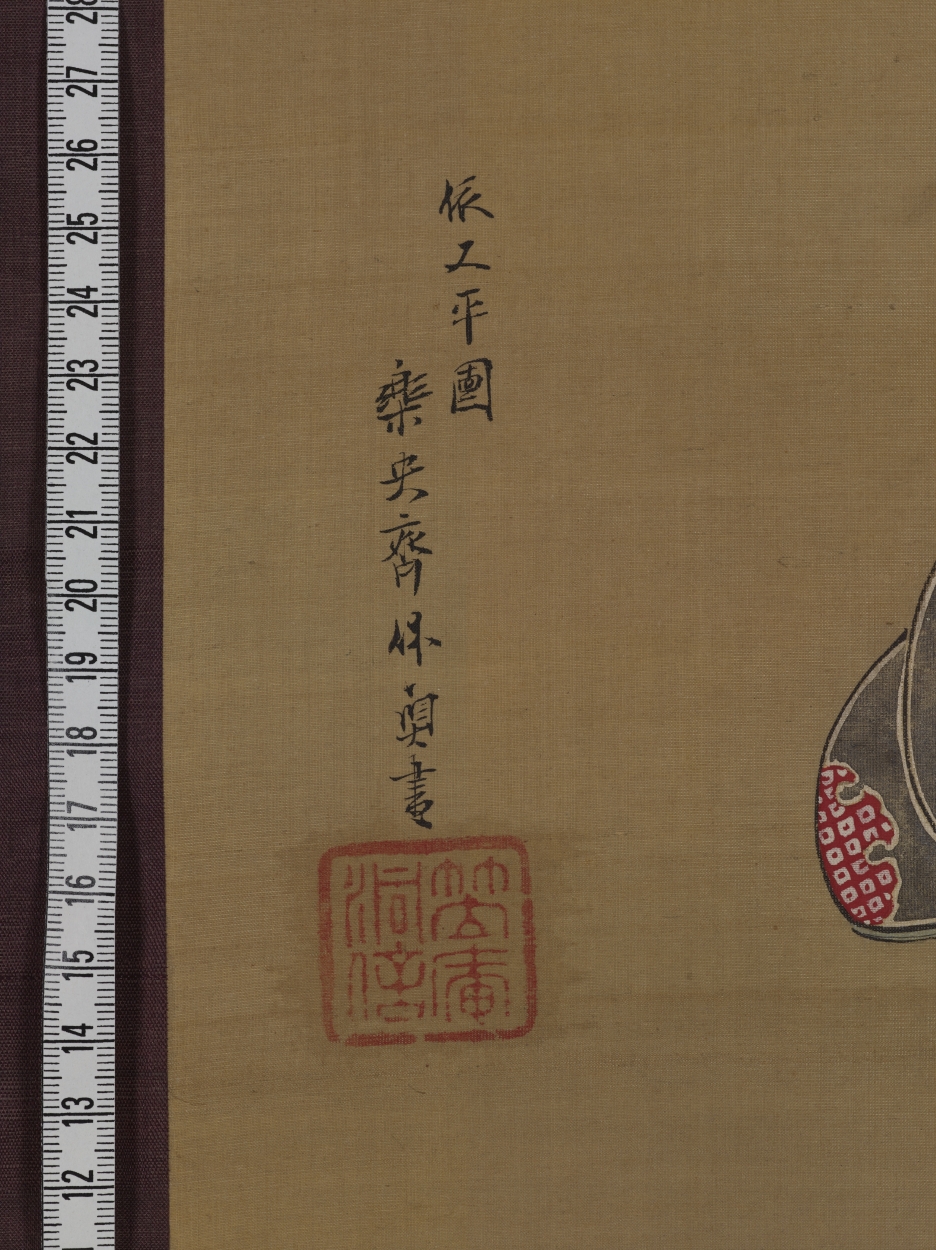 依又平圖
樂央齊保眞畫
28
27
26
25
24
23
22
21
20
19
18
17
16
15
14
13
12